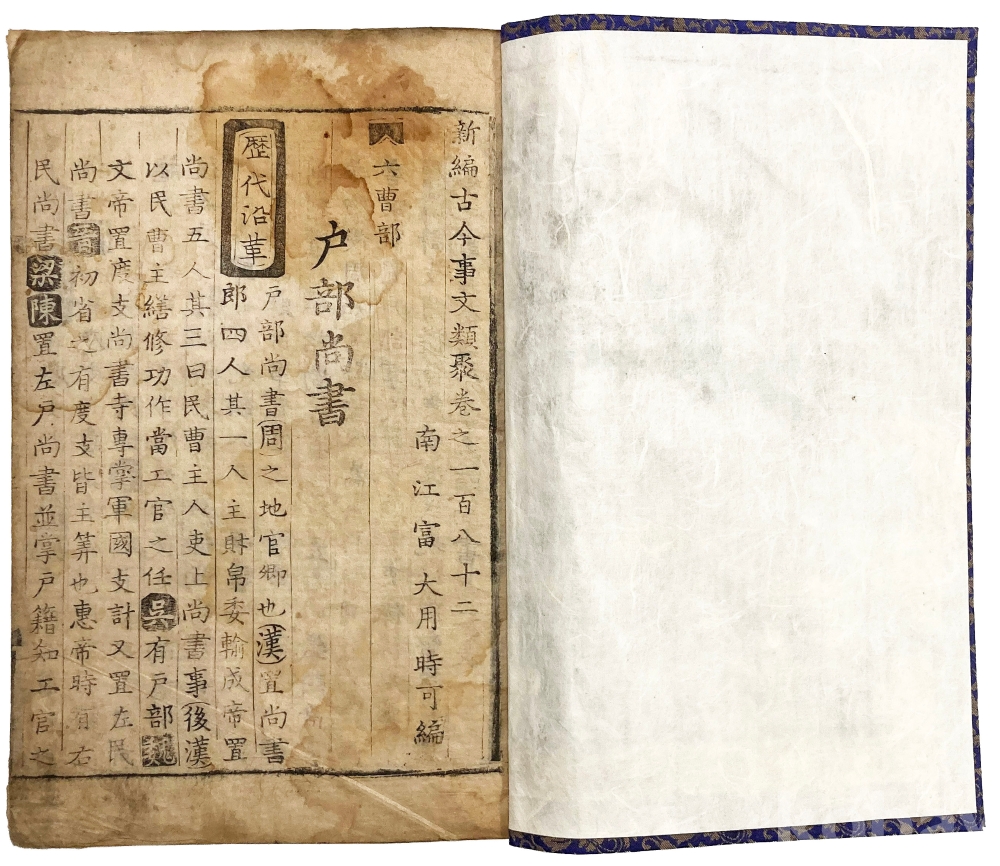 新編古今事文類聚卷之一百八十二
南江富大用時可編
六曹部
戶部尚書
歷代沿革
戶部尚書周之地官卿也漢置尚書
郎四人其一人主財帛委輸成帝置
尚書五人其三曰民曹主人吏上尚書事後漢
以民曹主繕修功作當工官之任吳有戶部魏
文帝置度支尚書寺專掌軍國支計又置左民
尚書晉初省之有度支皆主筭也惠帝時有右
民尚書梁陳置左戶尚書並掌戶籍知工官之